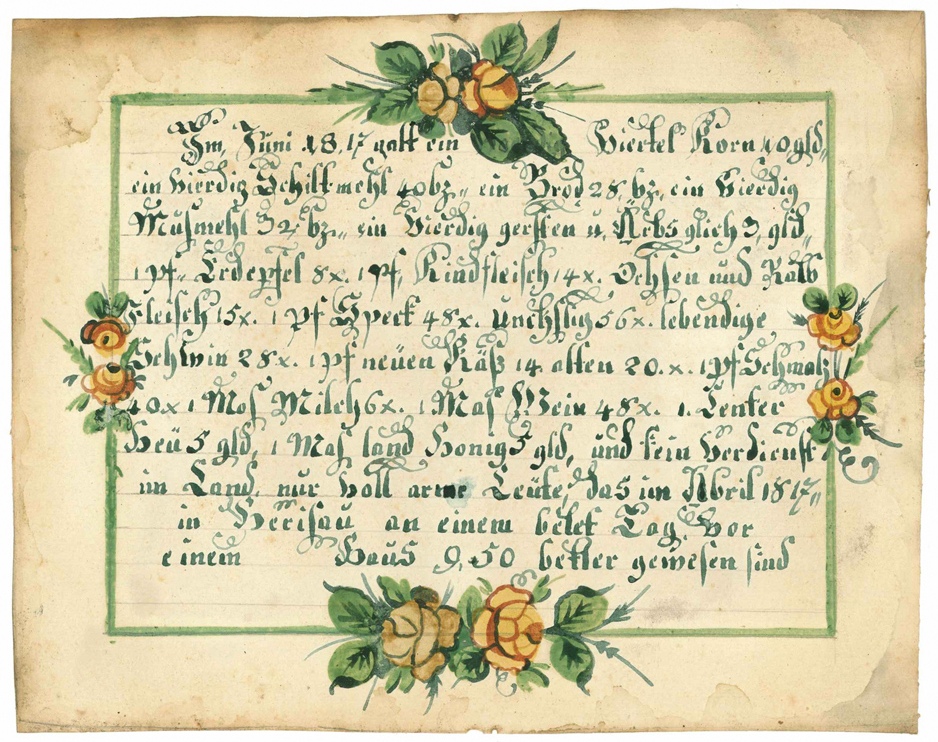 Im, Juni 18,17 galt ein Viertel Korn 10 gld„
ein Vierdig Schiltmehl 40 bz„ ein Brod 28, bz, ein Vierdig
Musmehl 32, bz„ ein Vierdig gersten u, Erbs glich 9, gld„
1 pf„ Erdepfel 8x. 1 pf, Rindfleisch 14x. Ochsen und Kalb
fleisch 15x. 1 pf Speck 48x. 56x. lebendige
Schwin 28x. 1 pf neüen Käß 14. alten 20.x. 1 pf Schmalz
40x 1 Mos Milch 6x. 1 Mas Wein 48x. 1. Center
Heü 5 gld, 1 Mas land Honig 5 gld, und kein Verdienst
im Land. nur voll arme Leüte, das im Abril 1817„
in Herisau an einem betel Tag, vor
einem Haus 9,50 betler gewesen sind